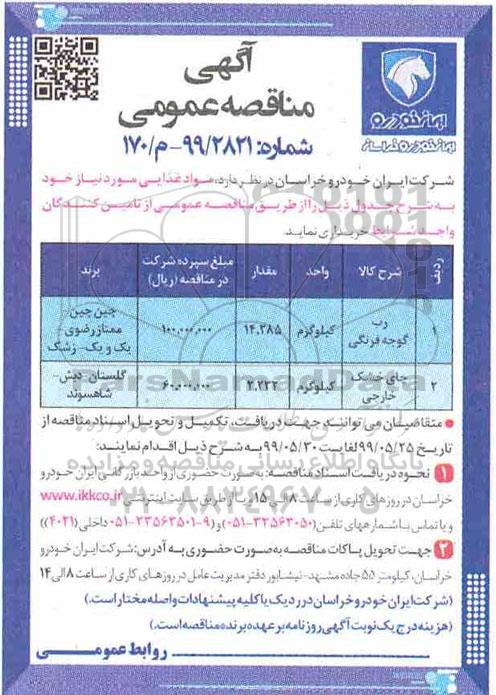 ایران خودرو
ایران خودرو خراسان
آگهی
مناقصه عمومی
شماره: ۹۹/۲۸۲۱-م/۱۷۰
شرکت ایران خودرو خراسان در نظر دارد، مواد غذایی مورد نیاز خود
به شرح جدول ذیل را از طریق مناقصه عمومی از تامین کنندگان
واجد شرایط خریداری نماید.
ردیف شرح کالا واحد مقدار مبلغ سپرده شرکت در مناقصه (ریال) برند
۱ رب گوجه فرنگی کیلوگرم ۱۴,۲۸۵ ۱۰۰,۰۰۰,۰۰۰ چین چین- ممتاز رضوی- یک و یک- زشک
۲ چای خشک خارجی کیلوگرم ۲,۲۳۲ ۶۰,۰۰۰,۰۰۰ گلستان- دبش- شاهسوند
• متقاضیان می توانند، جهت دریافت، تکمیل و تحویل اسناد مناقصه از
تاریخ ۹۹/۰۵/۲۵ لغایت ۹۹/۰۵/۳۰ به شرح ذیل اقدام نمایند:
۱ نحوه دریافت اسناد مناقصه: به صورت حضوری از واحد بازرگانی ایران خودرو
خراسان در روزهای کاری از ساعت ۸ الی ۱۵ و یا از طریق سایت اینترنتی www.ikkco.ir
و یا تماس با شماره های تلفن: (۳۳۵۶۳۰۵۰-۰۵۱) و (۹-۳۳۵۶۳۵۰۱-۰۵۱ داخلی (۴۰۲۱))
۲ جهت تحویل پاکات مناقصه به صورت حضوری به آدرس: شرکت ایران خودرو
خراسان، کیلومتر ۵۵ جاده مشهد-نیشابور دفتر مدیریت عامل در روزهای کاری از ساعت ۸ الی ۱۴
(شرکت ایران خودرو خراسان در رد یک یا کلیه پیشنهادات واصله مختار است.)
(هزینه درج یک نوبت آگهی روزنامه بر عهده برنده مناقصه است.)
روابط عمومی
ParsNamadData
پایگاه اطلاع رسانی مناقصه و مزایده
۰۲۱-۸۸۳۴۹۶۷۰-۵